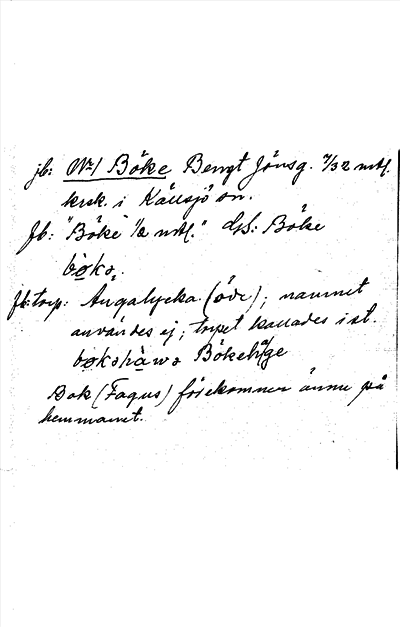 jb: No 1 Böke Bengt Jönsg. 7/32 mtl.
krsk. i Källsjö sn.
fb: "Böke 1/2 mtl." GS: Böke
bøkə
jb: torp: Ängalycka (öde); namnet
användes ej; torpet kallades ist.
bøkəhàwə Bökehage
Bok (Fagus) förekommer ännu på
hemmanet.